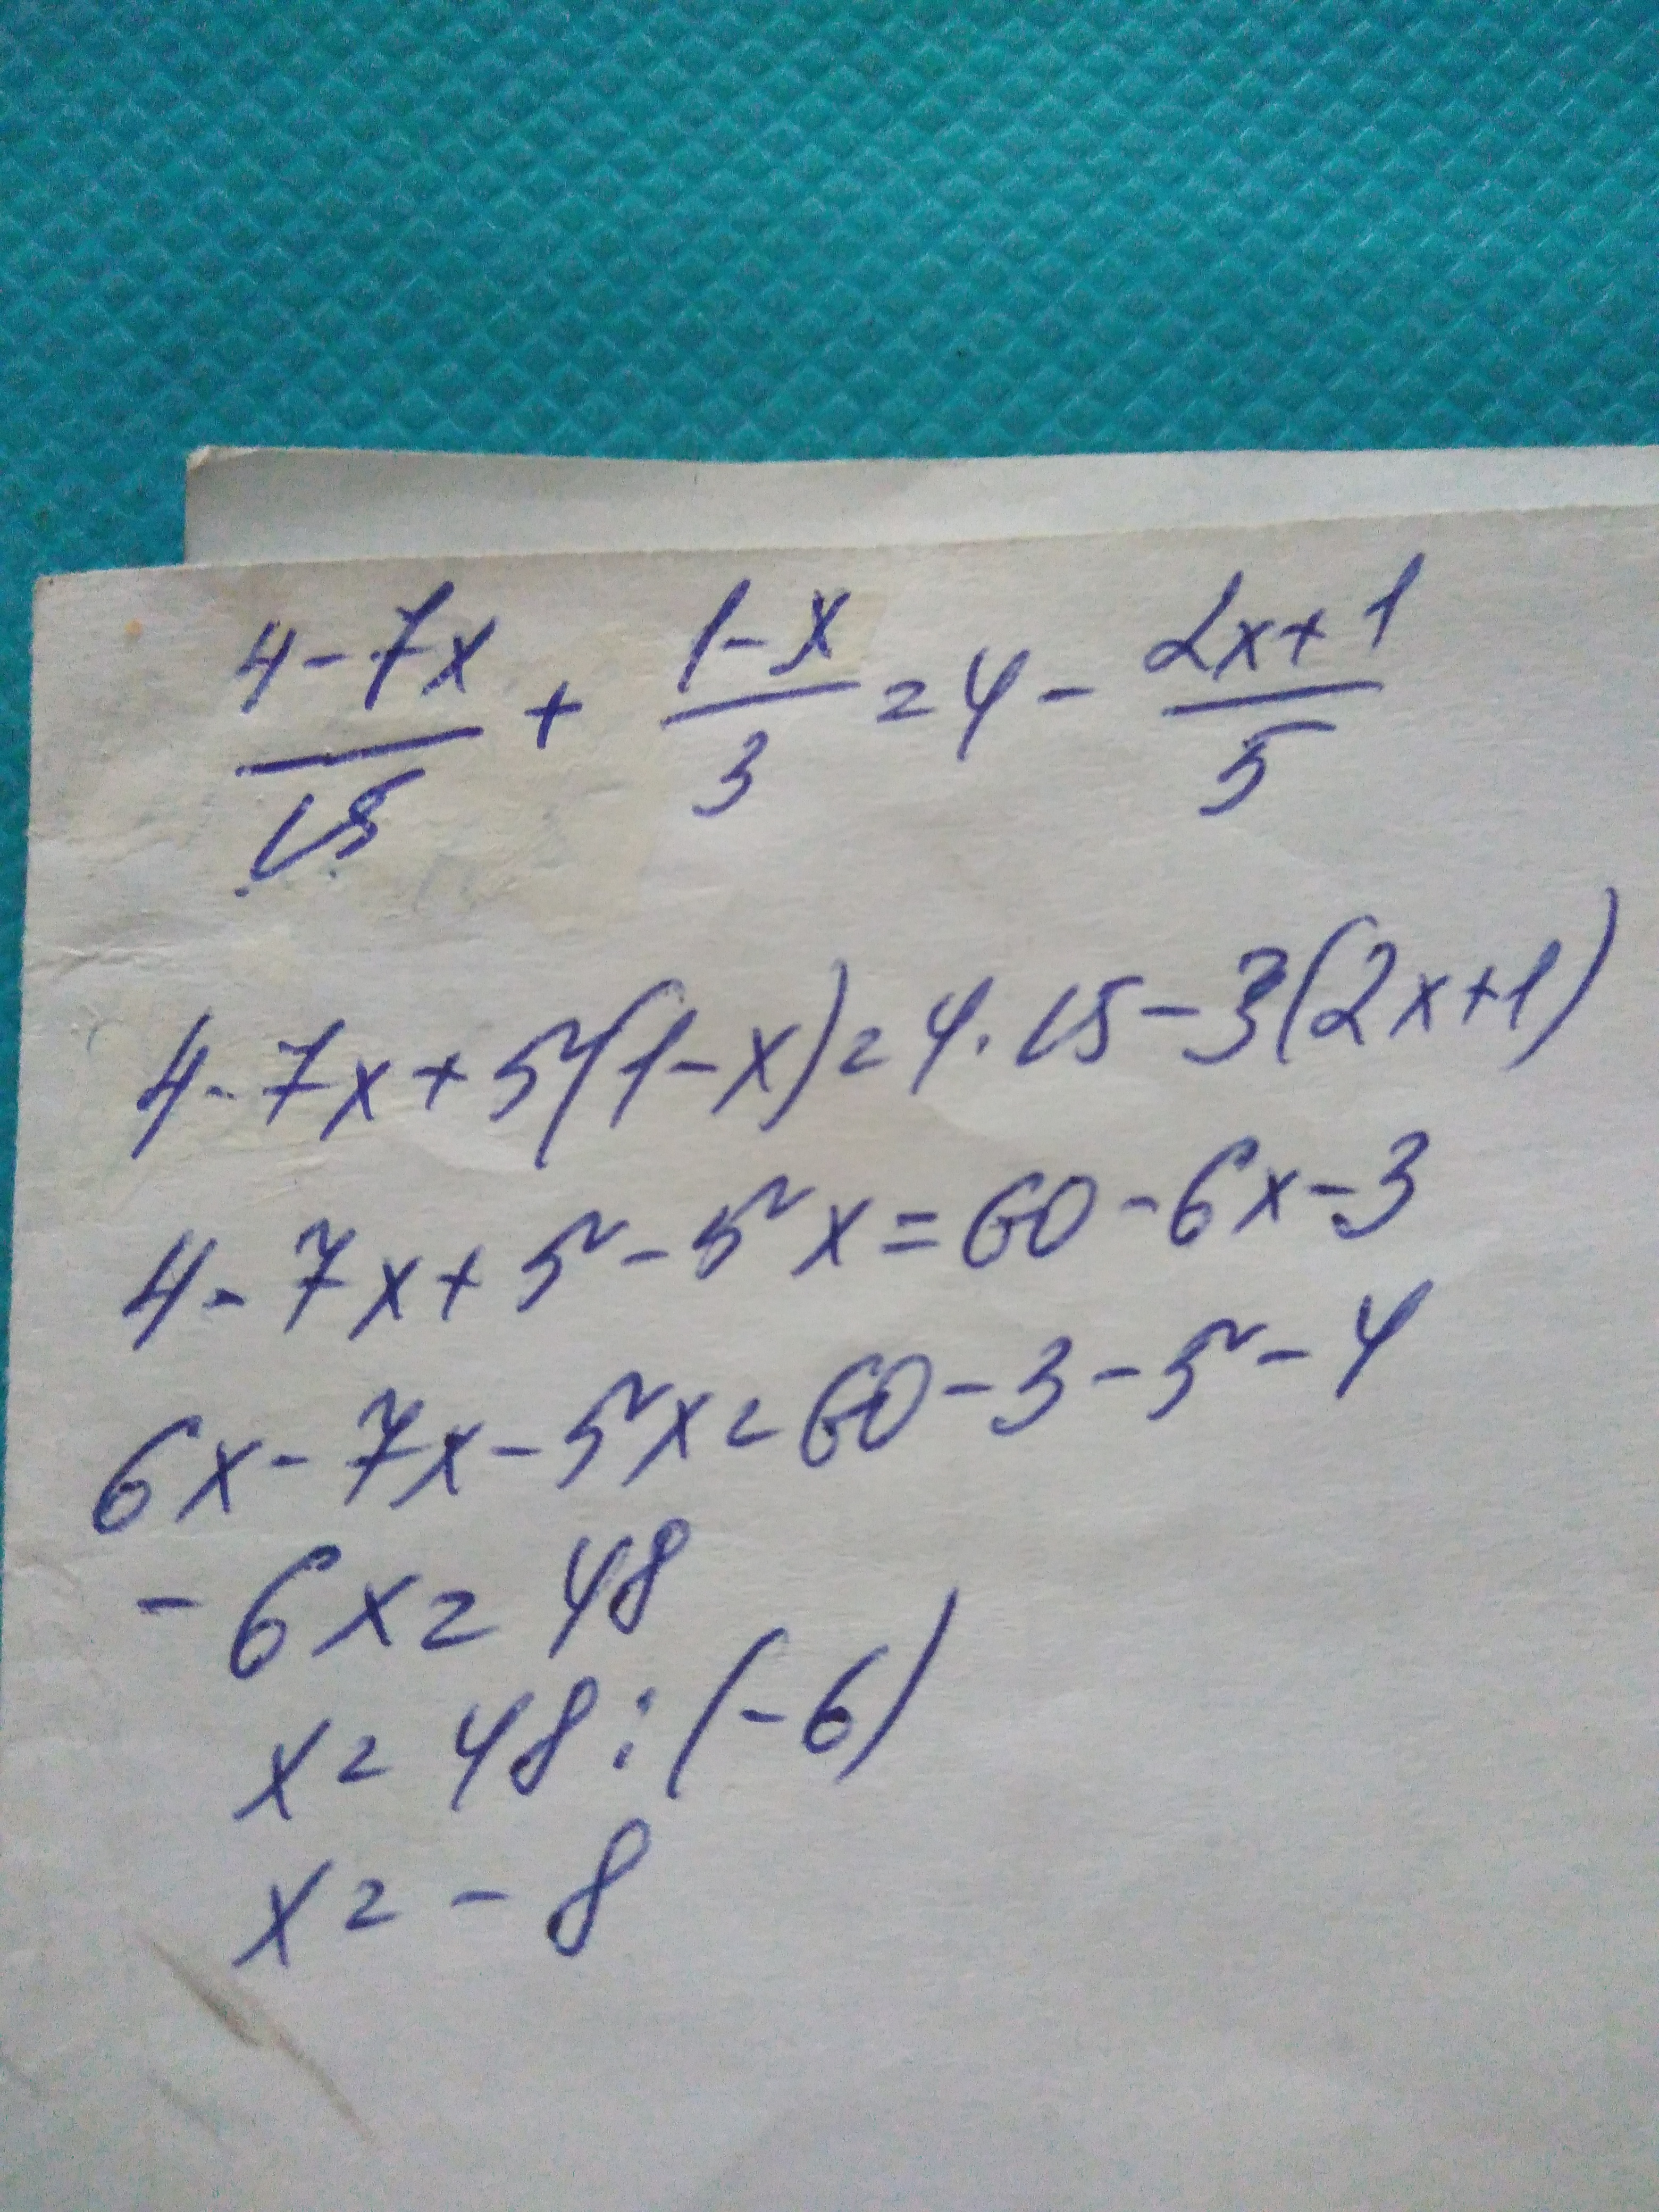 (4-7x)/15 + (1-x)/3 = 4 - (2x+1)/5
4-7x+5(1-x)=4·15-3(2x+1)
4-7x+5-5x=60-6x-3
6x-7x-5x=60-3-5-4
-6x=48
x=48:(-6)
x=-8